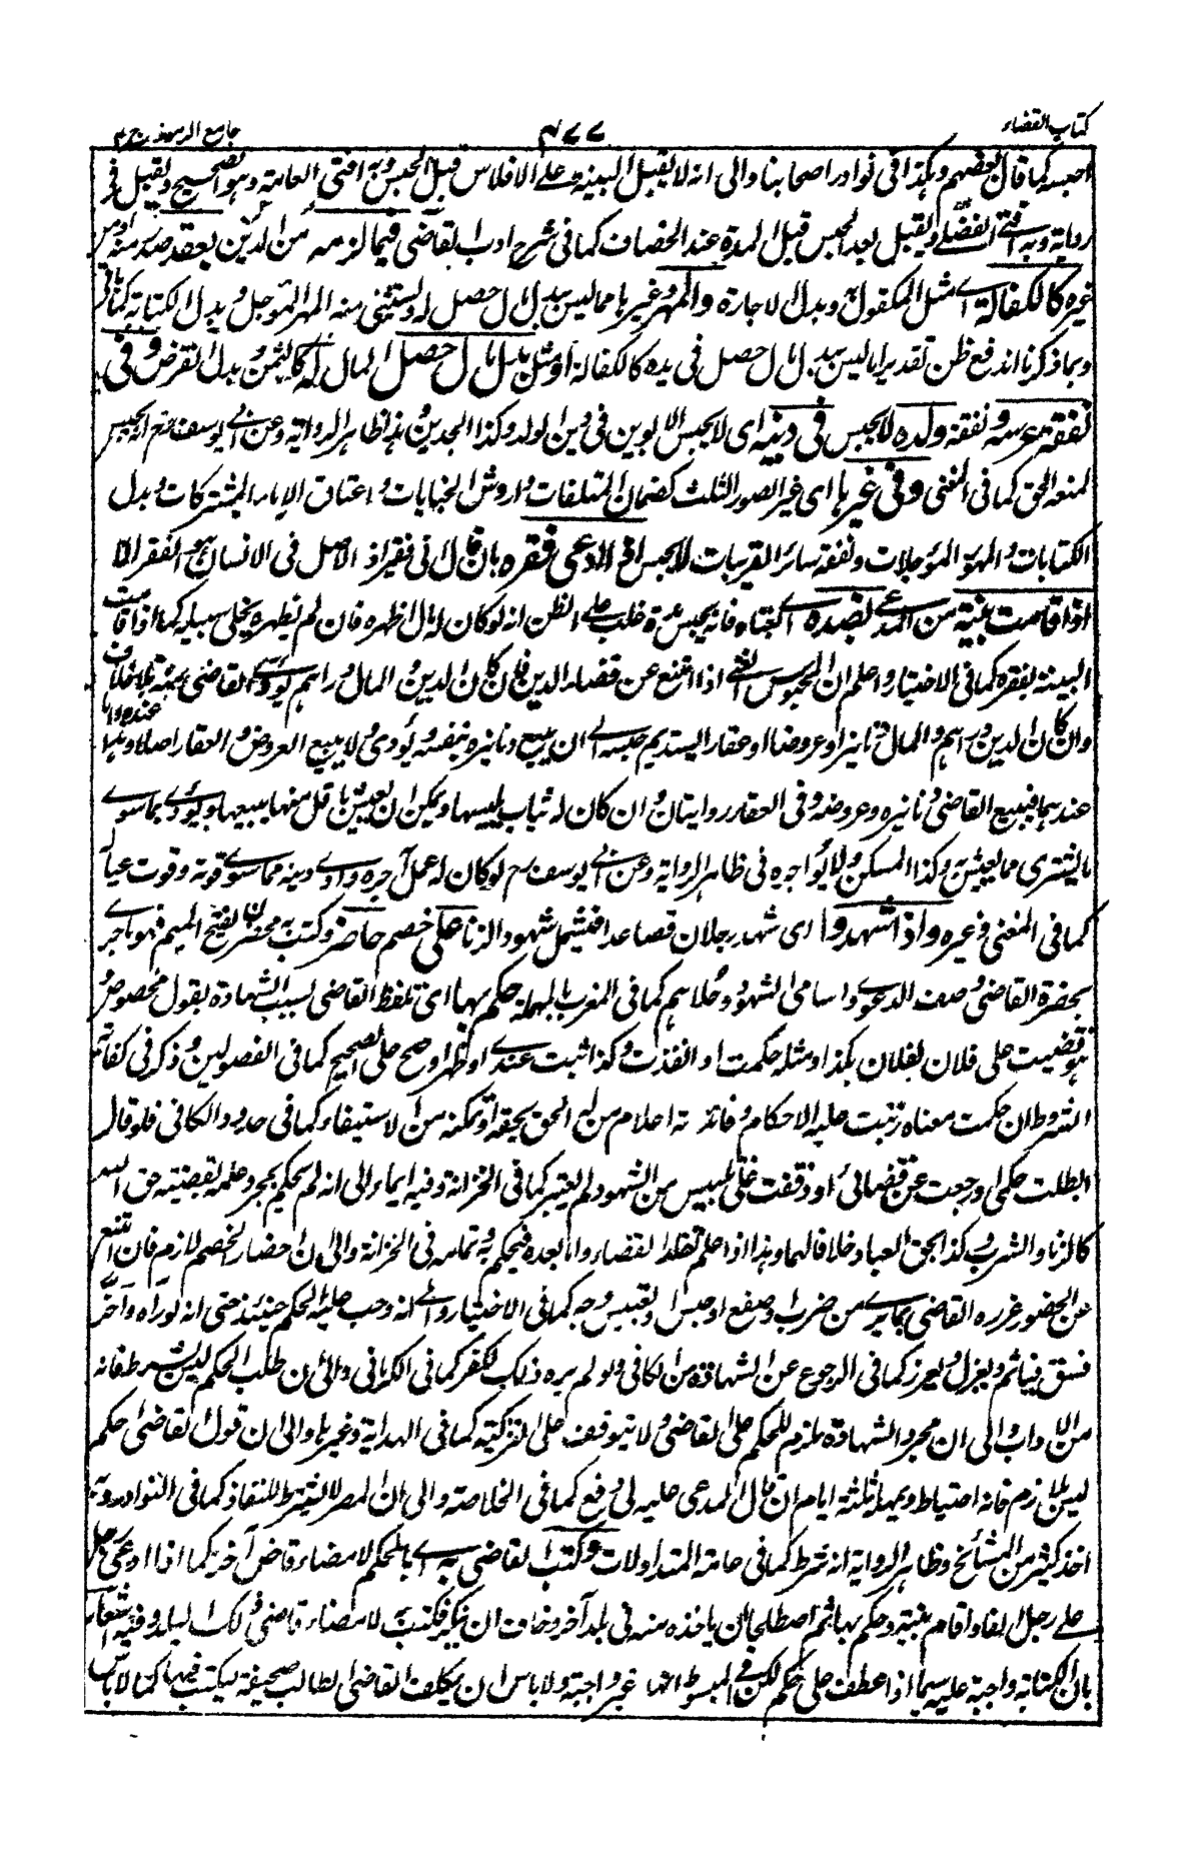 كتاب القضاء ٤٧٧ جامع الرموز ج ٢
احبسه كما قال بعضهم وهكذا في نوادر اصحابنا والى انه لا يقبل البينة على الافلاس قبل الحبس وبه افتى العامة وهو الصحيح ويقبل في
رواية وبه افتى الفضلي ويقبل بعد الحبس قبل المدة عند الخصاف كما في شرح ادب القاضي فيما لزمه من الدين بعقد صدر منه او من
غيره كالكفالة اي مثل المكفول به وبدل الاجارة والمهر وغيرها مما ليس بدل مال حصل له ويستثنى منه المهر المؤجل وبدل الكتابة كما يأتي
وبما ذكرنا اندفع ظن تقدير ما ليس بدل مال حصل في يده كالكفالة او مثل بدل مال حصل المال له كالثمن وبدل القرض وفي
نفقة عرسه ونفقة ولده لا يحبس في دينه اى لا يحبس الابوين في دين الولد وكذا الجدين وهذا ظاهر الرواية وعن ابي يوسف رحمه انه يحبس
لمنعه الحق كما في المغني وفي غيرها اى غير الصور الثلث كضمان المتلفات واروش الجنايات واعتاق الاماء المشتركات وبدل
الكتابات والمهور المؤجلات ونفقة سائر القريبات لا يحبس ان ادعى فقره بان قال اني فقير اذ الاصل في الانسان هو الفقر الا
اذا قامت بينة من المدعي بضده اي بغناه فانه يحبس مدة غلب على الظن انه لو كان له مال اظهره فان لم يظهره يخلى سبيله كما اذا قامت
البينة بفقره كما في الاختيار واعلم ان المحبوس الغني اذا امتنع عن قضاء الدين فان كان الدين والمال دراهم يؤدي القاضي منه بلا خلاف
وان كان الدين دراهم والمال دنانير او عروضا او عقارا يستديم حبسه الى ان يبيع دنانيره بنفسه ويؤدى ولا يبيع العروض والعقار اصلا عنده واما
عندهما فيبيع القاضي دنانيره وعروضه وفي العقار روايتان وان كان له ثياب يلبسها ويمكن ان يعيش باقل منها يبيعها ويؤدي بما سوى
ما يشترى مما يعيش به وكذا المسكن ولا يؤاجره في ظاهر الرواية وعن ابي يوسف رح لو كان له عمل آجره وادى دينه مما سوى قوته وقوت عياله
كما في المغني وغيره واذا شهدوا اى شهد رجلان فصاعدا فيشمل شهود الزنا على خصم حاضر وكتب به محضر بفتح الميم فهو ما جرى
بحضرة القاضي وصفت الدعوى واسامى الشهود وحلاهم كما في المغرب بالمهملة حكم بها اى تلفظ القاضي بسبب الشهادة بقول مخصوص
هو قضيت على فلان بفلان بكذا ومثله حكمت او انفذت وكذا ثبت عندي او ظهر او صح على الصحيح كما في الفصولين وذكر في كفاية
الشروط ان حكمت معناه رتبت عليه الاحكام وفائدته اعلام من له الحق بحقه او تمكنه من الاستيفاء كما في حدود الكافي فلو قال
ابطلت حكمي او رجعت عن قضائي او وقفت على تلبيس من الشهود لم يعتبر كما في الخزانة وفيه ايماء الى انه لم يحكم بمجرد علمه بقضيته حق الله
كالزنا والشرب وكذا بحق العباد خلافا لهما وهذا اذا علم قبل تقلد القضاء واما بعده فيحكم به وتمامه في الخزانة والى ان احضار الخصم لازم فان امتنع
عن الحضور عزره القاضي بما يرى من ضرب او صفع او حبس او تعبيس وجه كما في الاختيار والى انه وجب عليه الحكم حينئذ حتى انه لو رآه وآخر
فسق فيأثم ويعزل ويعزر كما في الرجوع عن الشهادة من الكافي ولو لم يره ذلك لكفر كما في الكرماني والى ان طلب الحكم ليس بشرط فانه
من الآداب والى ان مجرد الشهادة ملزم للحكم على القاضي ولا يتوقف على التزكية كما في الهداية وغيرها والى ان قول القاضي احكم
ليس بلازم فانه احتياط ويمهل ثلثة ايام ان قال المدعى عليه لي دفع كما في الخلاصة والى ان المصر لا يشترط للنفاذ كما في النوادر وبه
اخذ كثير من المشائخ وظاهر الرواية انه شرط كما في عامة المتداولات وكتب القاضي به اي بالحكم لامضاء قاض آخر كما اذا ادعى رجل
على رجل الفا واقام بينة وحكم بها ثم اصطلحا ان ياخذه منه في بلد آخر وخاف ان ينكر فكتب به لامضاء قاضي ذلك البلد وفيه اشعار
بان الكتابة واجبة عليه سيما اذا عطف على حكم لكن في المبسوط انها غير واجبة ولا باس ان يكلف القاضي الطالب صحيفة يكتب فيها كما لا باس